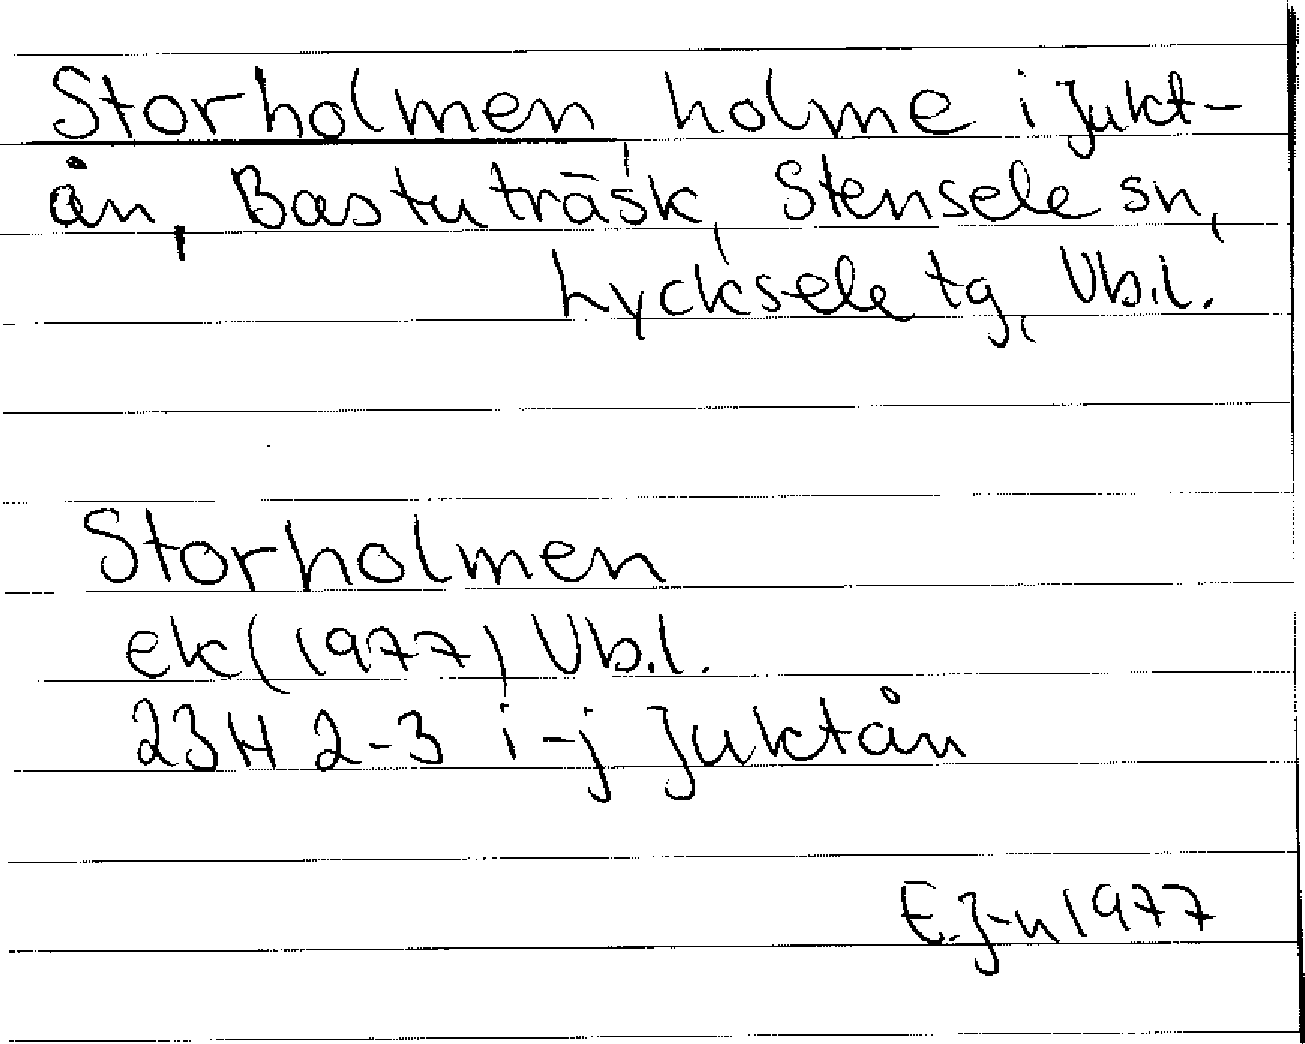 Storholmen holme i Jukt-
ån, Bastuträsk, Stensele sn,
Lycksele tg, Vb.l.
Storholmen
ek (1977) Vb.l.
23H 2-3 i-j Juktån
E.J-n 1977